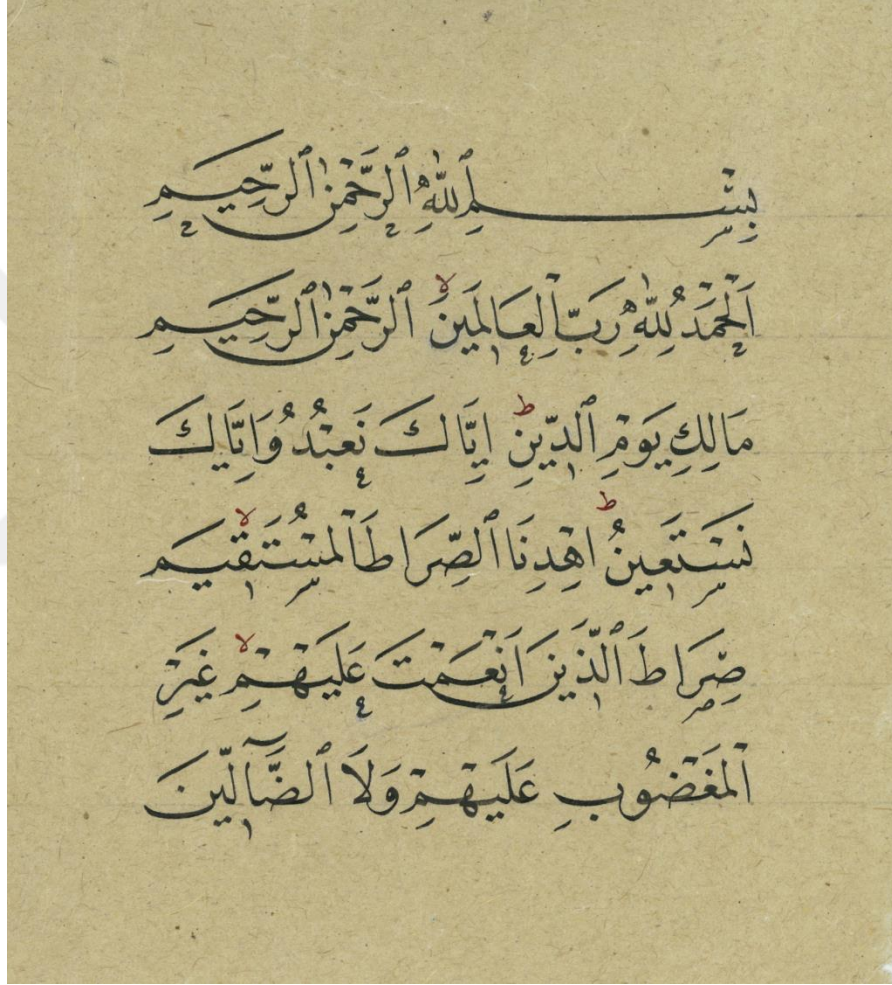 بِسْمِ ٱللّٰهِ ٱلرَّحْمٰنِ ٱلرَّحِيمِ
اَلْحَمْدُ لِلّٰهِ رَبِّ الْعَالَمِينَ ۙ ٱلرَّحْمٰنِ ٱلرَّحِيمِ
مَالِكِ يَوْمِ ٱلدِّينِ ؕ اِيَّاكَ نَعْبُدُ وَاِيَّاكَ
نَسْتَعِينُ ؕ اِهْدِنَا ٱلصِّرَاطَ الْمُسْتَقِيمَ ۙ
صِرَاطَ ٱلَّذِينَ اَنْعَمْتَ عَلَيْهِمْ ۙ غَيْرِ
الْمَغْضُوبِ عَلَيْهِمْ وَلَا ٱلضَّٓالِّينَ